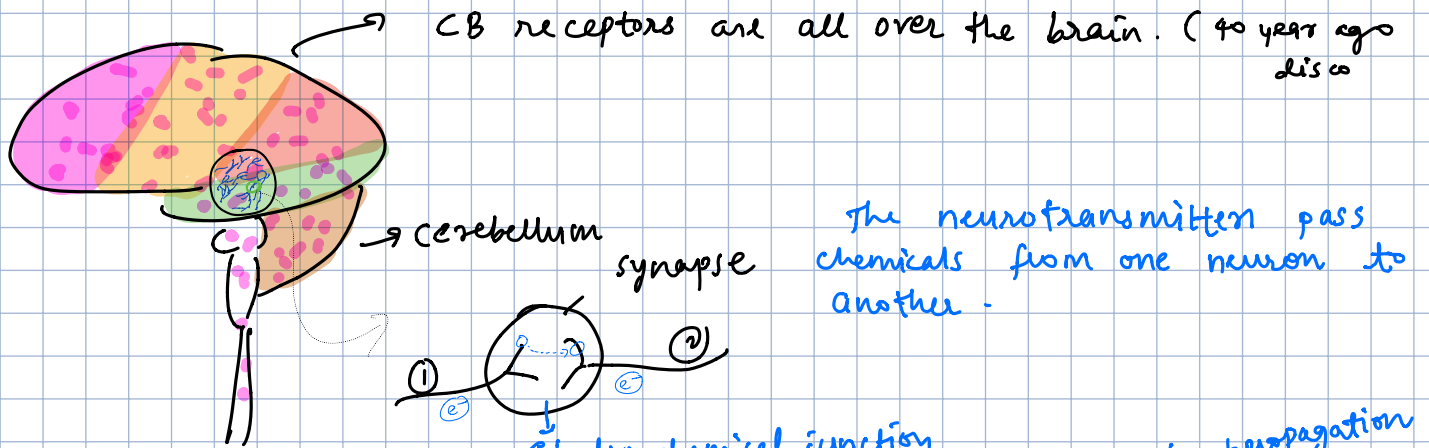 CB receptors are all over the brain. (40 year ago
disco
→ cerebellum
synapse
The neurotransmitter pass
chemicals from one neuron to
another.
①
②
e⁻
e⁻
junction
propagation